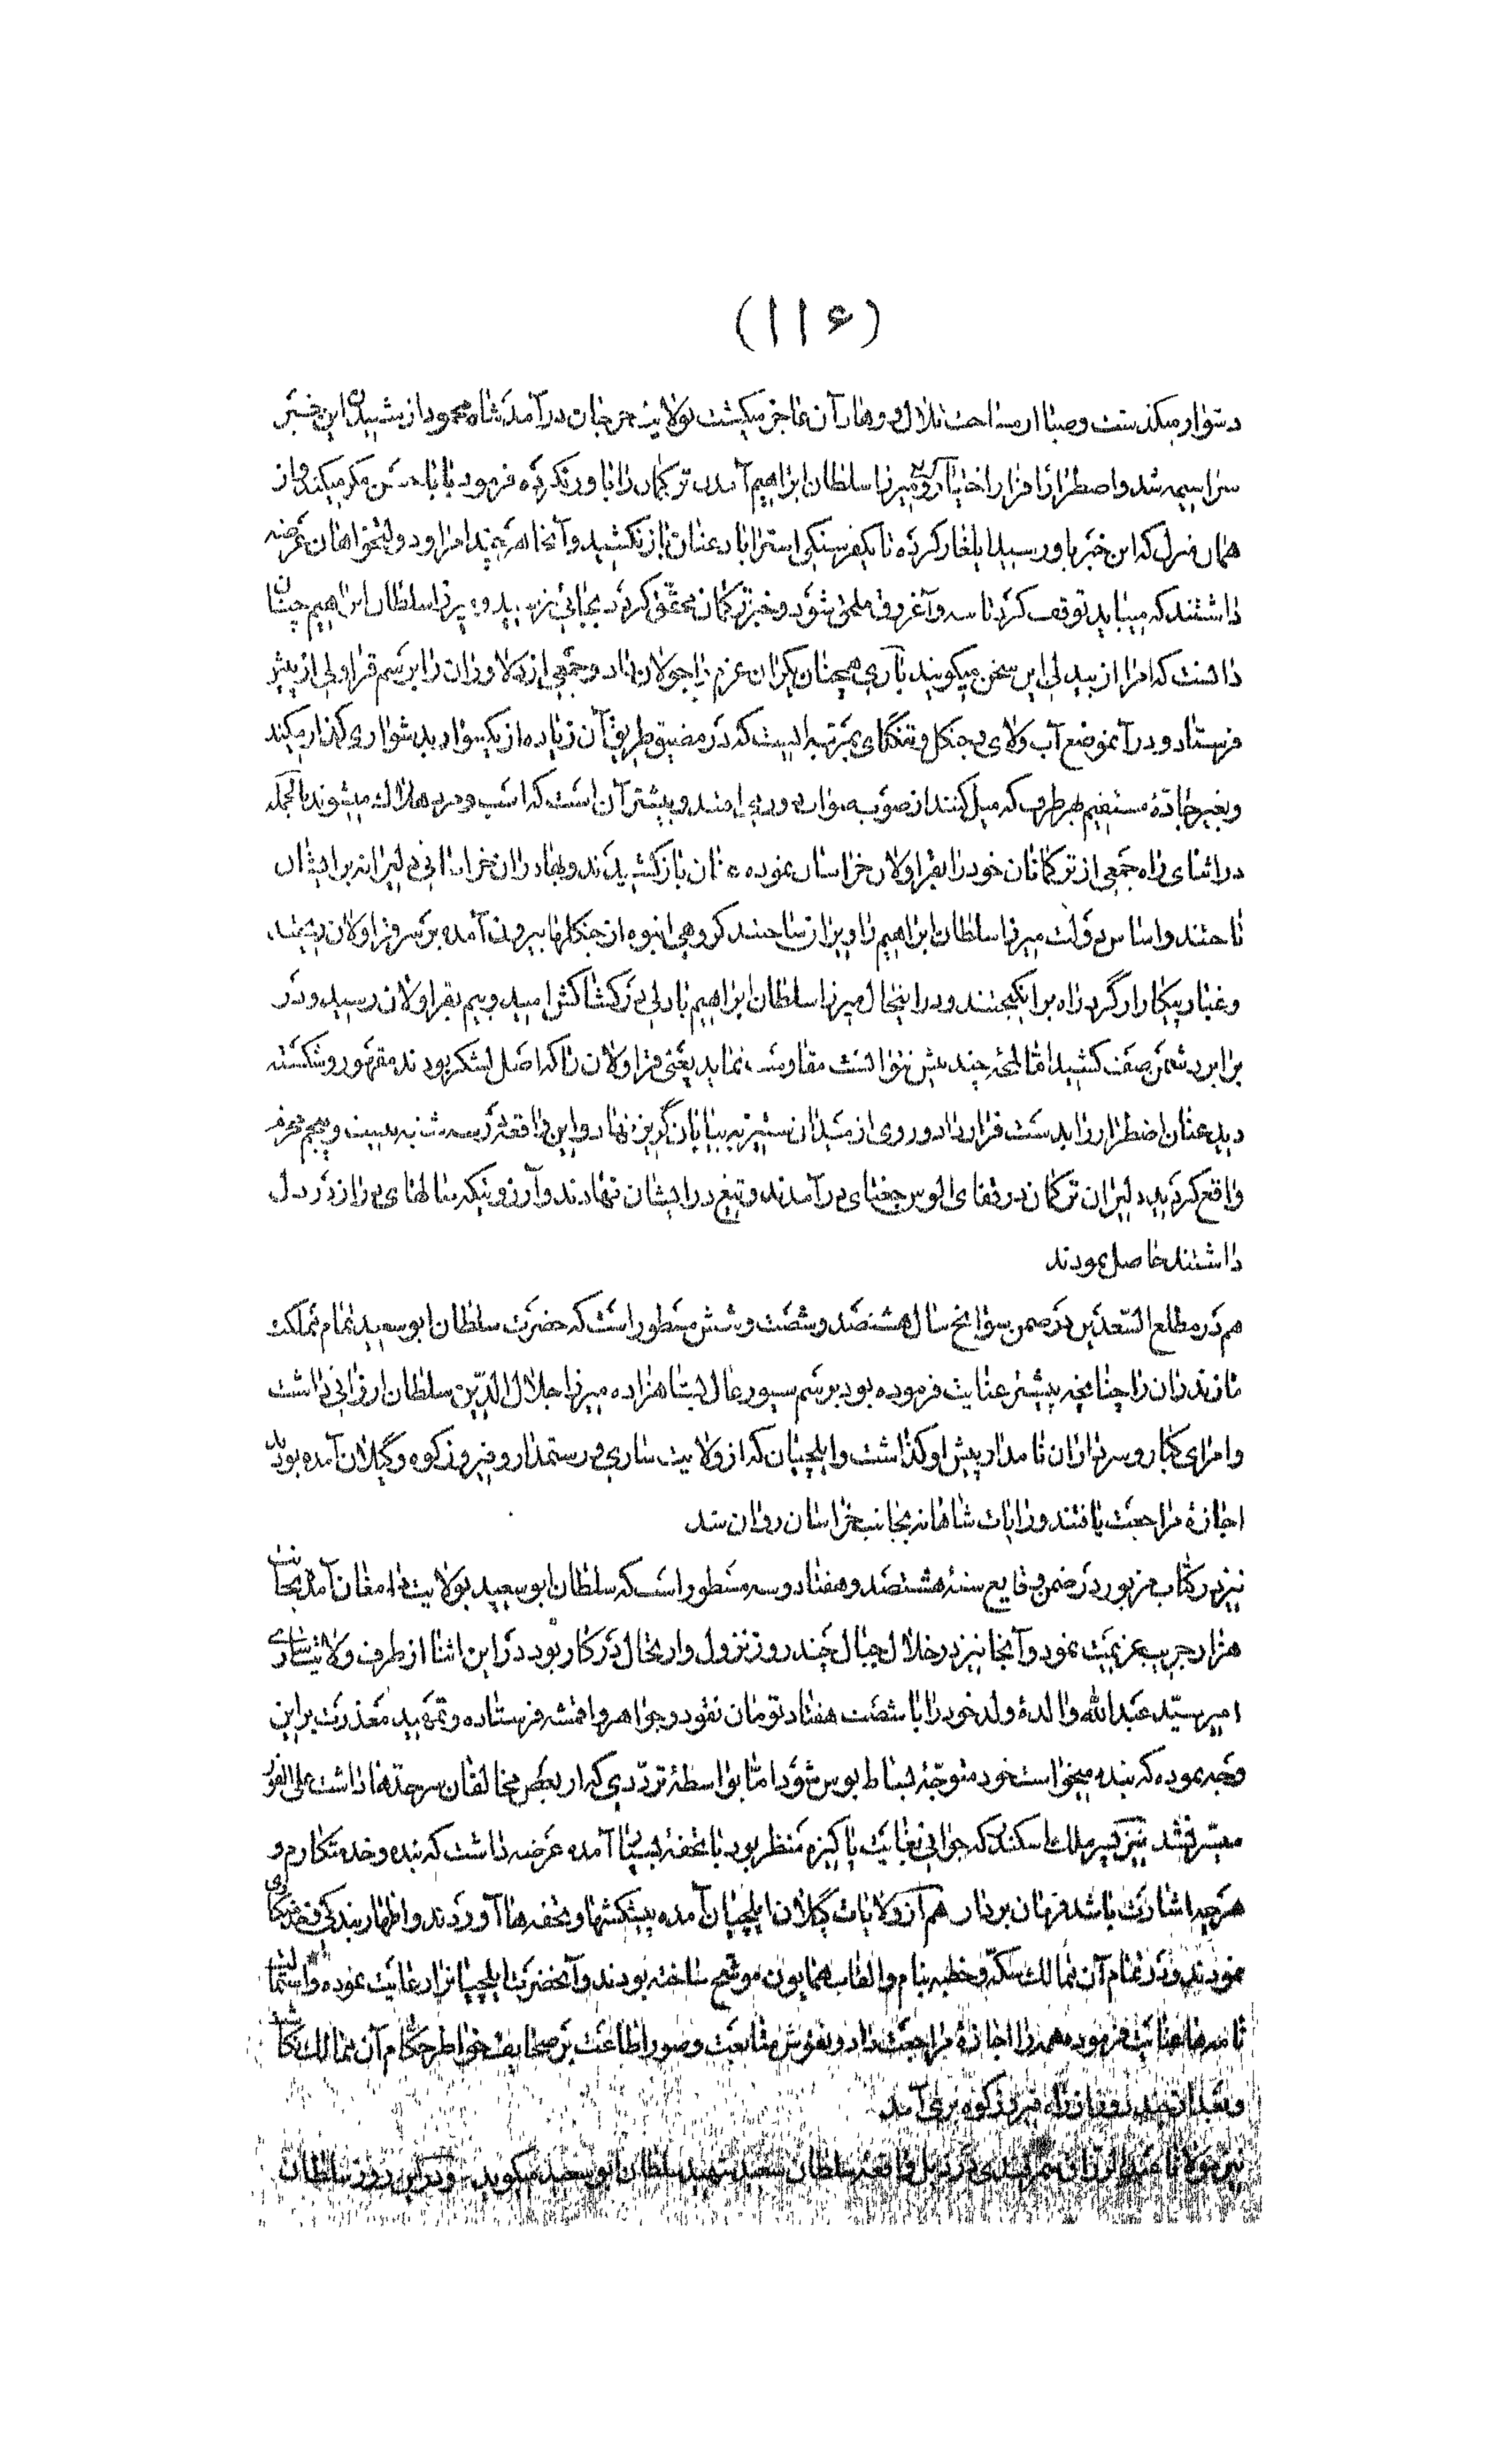 (۱۱۶)
دشوار میکذشت وصبا از مساحت تلال و وهاد آن عاجز میکشت بولایت جرجان درآمد شاه محمود از شنیدن این خبر
سراسیمه شد واضطرارا فرار اختیار کرد ومیرزا سلطان ابراهیم آمدن ترکمان را باور نکرده فرمود بابا حسن مکر میکند واز
همان منزل که این خبر باو رسید ایلغار کرده تا یکفرسنکی استراباد عنان باز نکشید وآنجا هرچند امرا ودولتخواهان عرضه
داشتند که میباید توقف کرد تا سه وآغروق ملحق شود وخبر ترکمان محقق کردد بجائی نرسید ومیرزا سلطان ابراهیم چنان
دانست که امرا از بیدلی این سخن میکویند باری همچنان یکران عزم را جولان داد وجمعی از دلاوران را برسم قراولی از پیش
فرستاد ودر آنموضع آب ولای وجنکل وتنکنای بمرتبه ایست که در مضیق طریق آن زیاده از یکسوار بدشواری کذار میکند
وبغیر جادهٔ مستقیم بهر طرف که میل کنند از صوب صواب دور می افتند وبیشتر آن است که اسب ومرد هلاک میشوند بالجمله
در اثنای راه جمعی از ترکمانان خود را بقراولان خراسان نموده عنان باز کشیدند وبهادران خراسانی دلیرانه برایشان
تاختند واساس دولت میرزا سلطان ابراهیم را ویران ساختند کروهی انبوه از جنکلها بیرون آمده بر سر قراولان ریختند
وغبار پیکار از کرد راه برانکیختند ودر اینحال میرزا سلطان ابراهیم با دلی در کشاکش امید وبیم بقراولان رسید ودر
برابر دشمن صف کشید اما لمحهٔ چند بیش نتوانست مقاومت نماید یعنی قراولان را که اصل لشکر بودند مقهور وشکسته
دید عنان اضطرار را بدست فرار داد وروی از میدان ستیز به بیابان کریز نهاد واین واقعه در سه شنبه بیست وپنجم محرم
واقع کردید دلیران ترکمان در قفای الوس جغتای درآمدند وتیغ در ایشان نهادند وآرزوئیکه سالهای دراز در دل
داشتند حاصل نمودند
هم در مطلع السعدین در ضمن سوانح سال هشتصد وشصت وشش مسطور است که حضرت سلطان ابوسعید تمام مملکت
مازندران را چنانچه پیشتر عنایت فرموده بود برسم سیورغال بشاهزاده میرزا جلال الدین سلطان ارزانی داشت
وامرای کبار وسرداران نامدار پیش او کذاشت وایلچیان که از ولایت ساری ورستمدار وفیروزکوه وکیلان آمده بودند
اجازهٔ مراجعت یافتند ورایات شاهانه بجانب خراسان روان شد
نیز در کتاب مزبور در ضمن وقایع سنهٔ هشتصد وهفتاد وسه مسطور است که سلطان ابوسعید بولایت دامغان آمد بجانب
هزار جریب عزیمت نمود وآنجا نیز در خلال جبال چند روز نزول وارتحال در کار بود در این اثنا از طرف ولایت ساری
امیر سید عبدالله والدهٔ ولد خود را با شصت هفتاد تومان نقود وجواهر واقمشه فرستاده وتمهید معذرت براین
وجه نموده که بنده میخواست خود متوجه بساط بوس شود اما بواسطهٔ ترددی که از بعض مخالفان سرحدها داشت علی الفور
میسر نشد نیز پسر ملک اسکندر که جوانی بغایت پاکیزه منظر بود با تحفهٔ بسیار آمده عرضه داشت که بنده وخدمتکارم و
هرچه اشارت باشد فرمان بردار هم از ولایات کیلان ایلچیان آمده پیشکشها وتحفه ها آوردند واظهار بندکی وخدمتکاری
نمودند ودر تمام آن ممالک سکه وخطبه بنام والقاب همایون موشح ساخته بودند وآنحضرت ایلچیانرا رعایت نموده واستمالت
نامه ها عنایت فرموده همه را اجازهٔ مراجعت داد ونقوش متابعت وصور اطاعت بر صحایف خواطر حکام آن ممالک نکاشته شد
وبعد از چند روز از راه فیروزکوه بری آمد
نیز مولانا عبدالرزاق سمرقندی در ذیل واقعهٔ سلطان سعید شهید سلطان ابوسعید میکوید ودر این روز سلطان